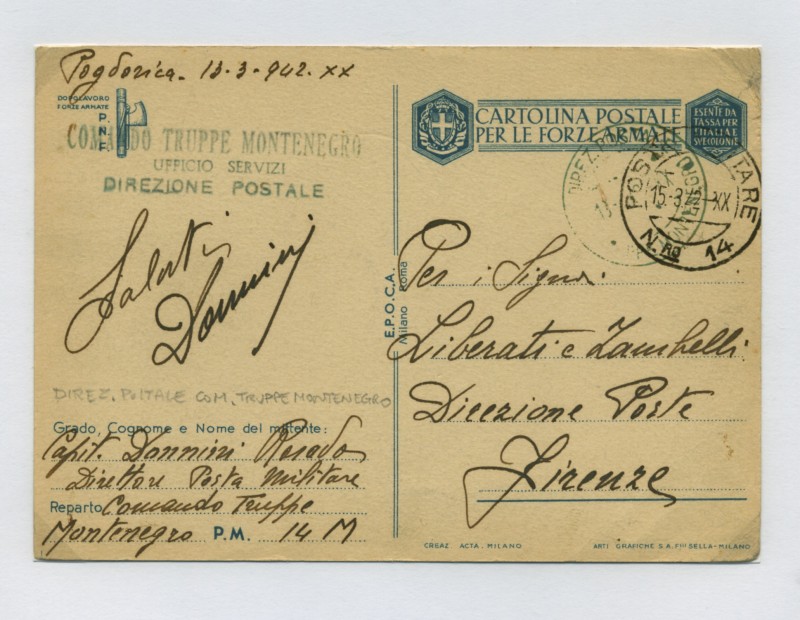 Pogdorica. 13-3-942.xx
DOPOLAVORO
FORZE ARMATE
P.
N.
F.
COMANDO TRUPPE MONTENEGRO
UFFICIO SERVIZI
DIREZIONE POSTALE
Saluti
Dannini
DIREZ. POSTALE COM. TRUPPE MONTENEGRO
Grado, Cognome e Nome del mittente:
Capit. Dannini
Direttore Posta Militare
Reparto Comando Truppe
Montenegro P.M. 14 M
E.P.O.C.A.
Milano Roma
CARTOLINA POSTALE
PER LE FORZE ARMATE
ESENTE DA
TASSA PER
L'ITALIA E
SUE COLONIE
DIREZ. POS
POS TARE
15-3 XX
N.RO 14
Per i Signori
Liberati e Zambelli
Direzione Poste
Firenze
CREAZ. ACTA. MILANO
ARTI GRAFICHE S.A. PIROLA-MILANO